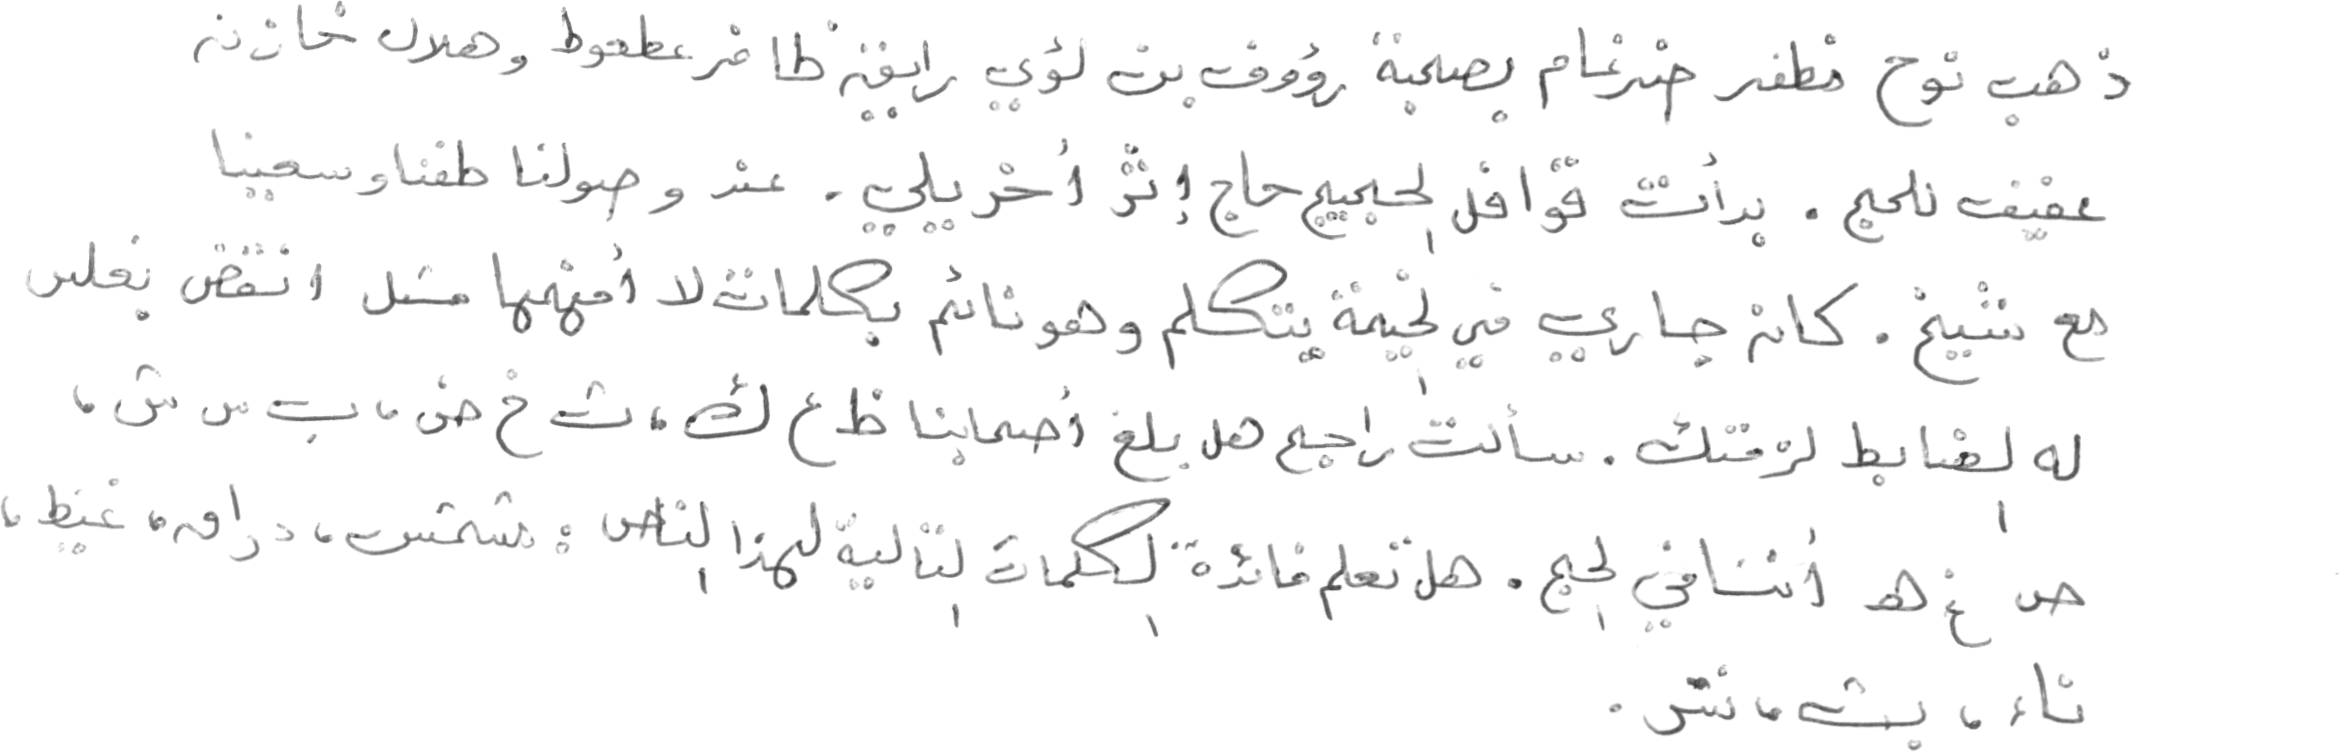 ذهب نوح مظفر ضرغام بصحبة رؤوف بن لؤي رايق ظافر عطعوط وهلال خازن
عفيف للحج . بدأت قوافل الحجيج حاج إثر أخر يلي . عند وصولنا طفنا وسعينا
مع شيخ . كان جاري في الخيمة يتكلم وهو نائم بكلمات لا أفهمها مثل انتقض بغلس
له الضابط لزقتك . سألت راجح هل بلغ أصحابنا ظ ع ك ، ث خ ض ، ب س ش ،
ص غ هـ أنثنا في الحج . هل تعلم فائدة الكلمات التالية لهذا الناص : شمس ، دراق ، غيظ ،
ناء ، بث ، نش .